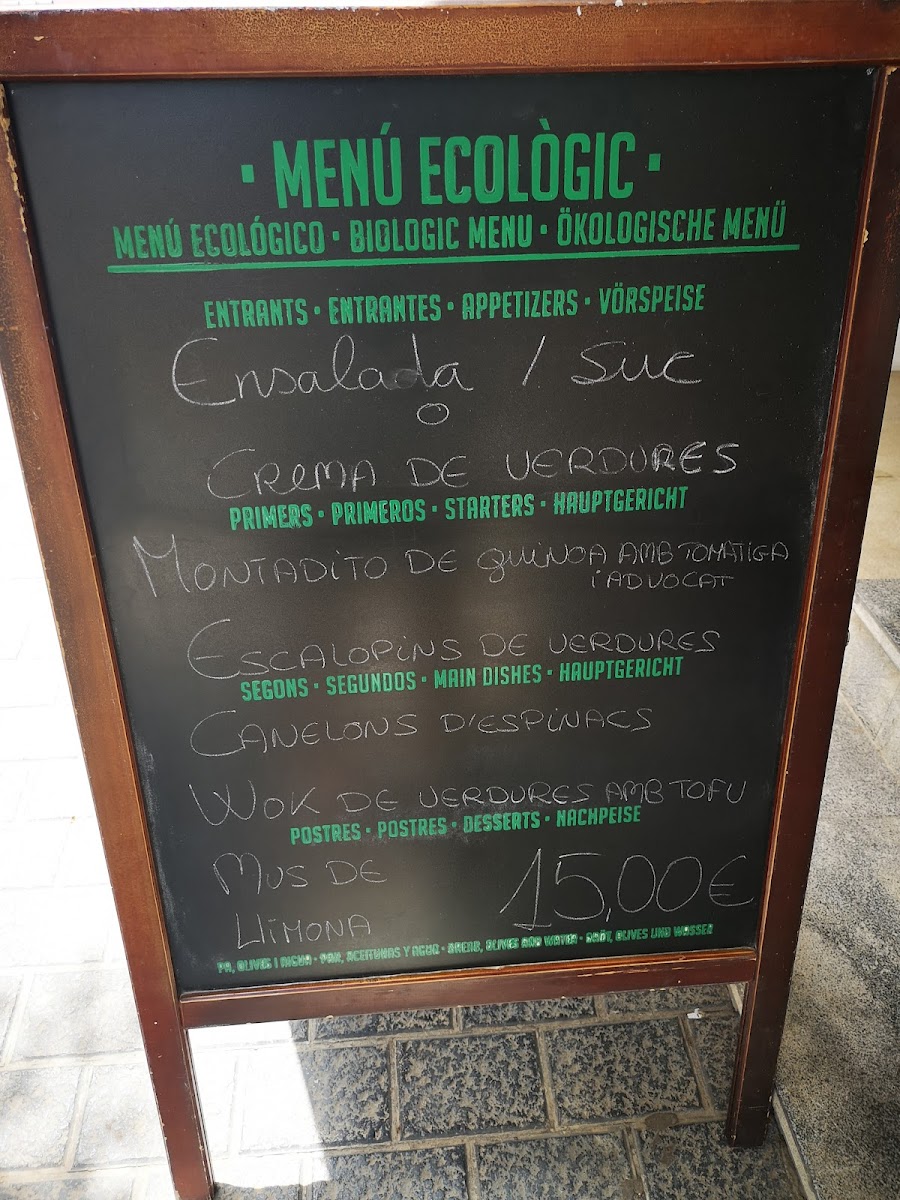 · MENÚ ECOLÒGIC ·
MENÚ ECOLÓGICO · BIOLOGIC MENU · ÖKOLOGISCHE MENÜ
ENTRANTS · ENTRANTES · APPETIZERS · VÖRSPEISE
Ensalada / SUC
O
CREMA DE VERDURES
PRIMERS · PRIMEROS · STARTERS · HAUPTGERICHT
MONTADITO DE QUINOA AMB TOMATIGA
I ADVOCAT
ESCALOPINS DE VERDURES
SEGONS · SEGUNDOS · MAIN DISHES · HAUPTGERICHT
CANELONS D'ESPINACS
WOK DE VERDURES AMB TOFU
POSTRES · POSTRES · DESSERTS · NACHPEISE
MUS DE
LLIMONA
15,00€
PA, OLIVES I AIGUA · PAN, ACEITUNAS Y AGUA · BREAD, OLIVES AND WATER · BRÖT, OLIVES UND WASSER